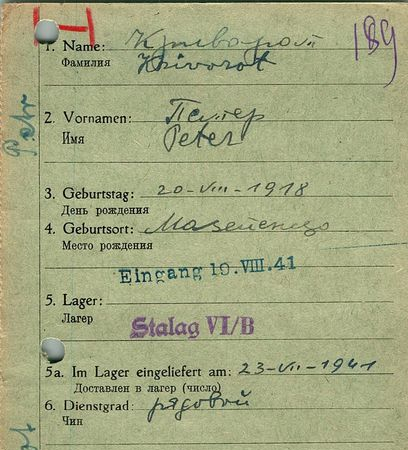 189
1. Name: Криворот
Фамилия Krivorot
2. Vornamen: Петер
Имя Peter
Petr
3. Geburtstag: 20-VIII-1918
День рождения
4. Geburtsort:
Место рождения
Eingang 19. VIII. 41
5. Lager:
Лагер Stalag VI/B
5a. Im Lager eingeliefert am: 23-VII-1941
Доставлен в лагер (число)
6. Dienstgrad: рядовой
Чин